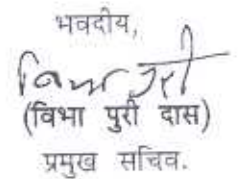 भवदीय,
(विभा पुरी दास)
प्रमुख सचिव.